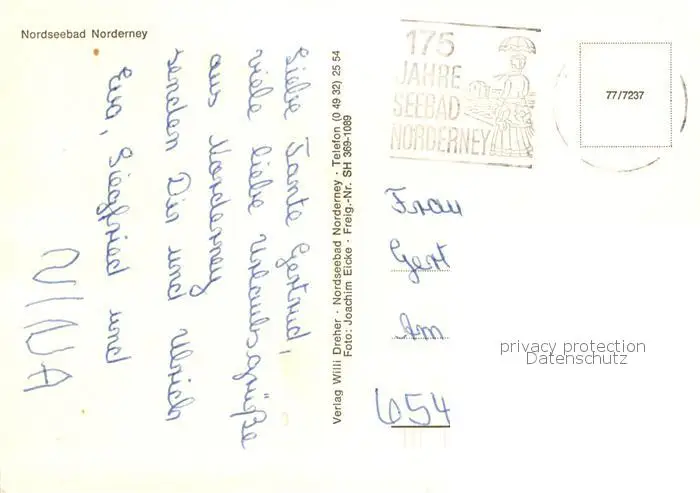 Nordseebad Norderney
Liebe Tante Gertrud,
viele liebe Urlaubsgrüße
aus Norderney
senden Dir und Ulrich
Eva, Siegfried und
NINA
Verlag Willi Dreher · Nordseebad Norderney · Telefon (0 49 32) 25 54
Foto: Joachim Eicke · Freig.-Nr. SH 369-1089
175
JAHRE
SEEBAD
NORDERNEY
77/7237
Frau
Gert
Am
654
privacy protection
Datenschutz